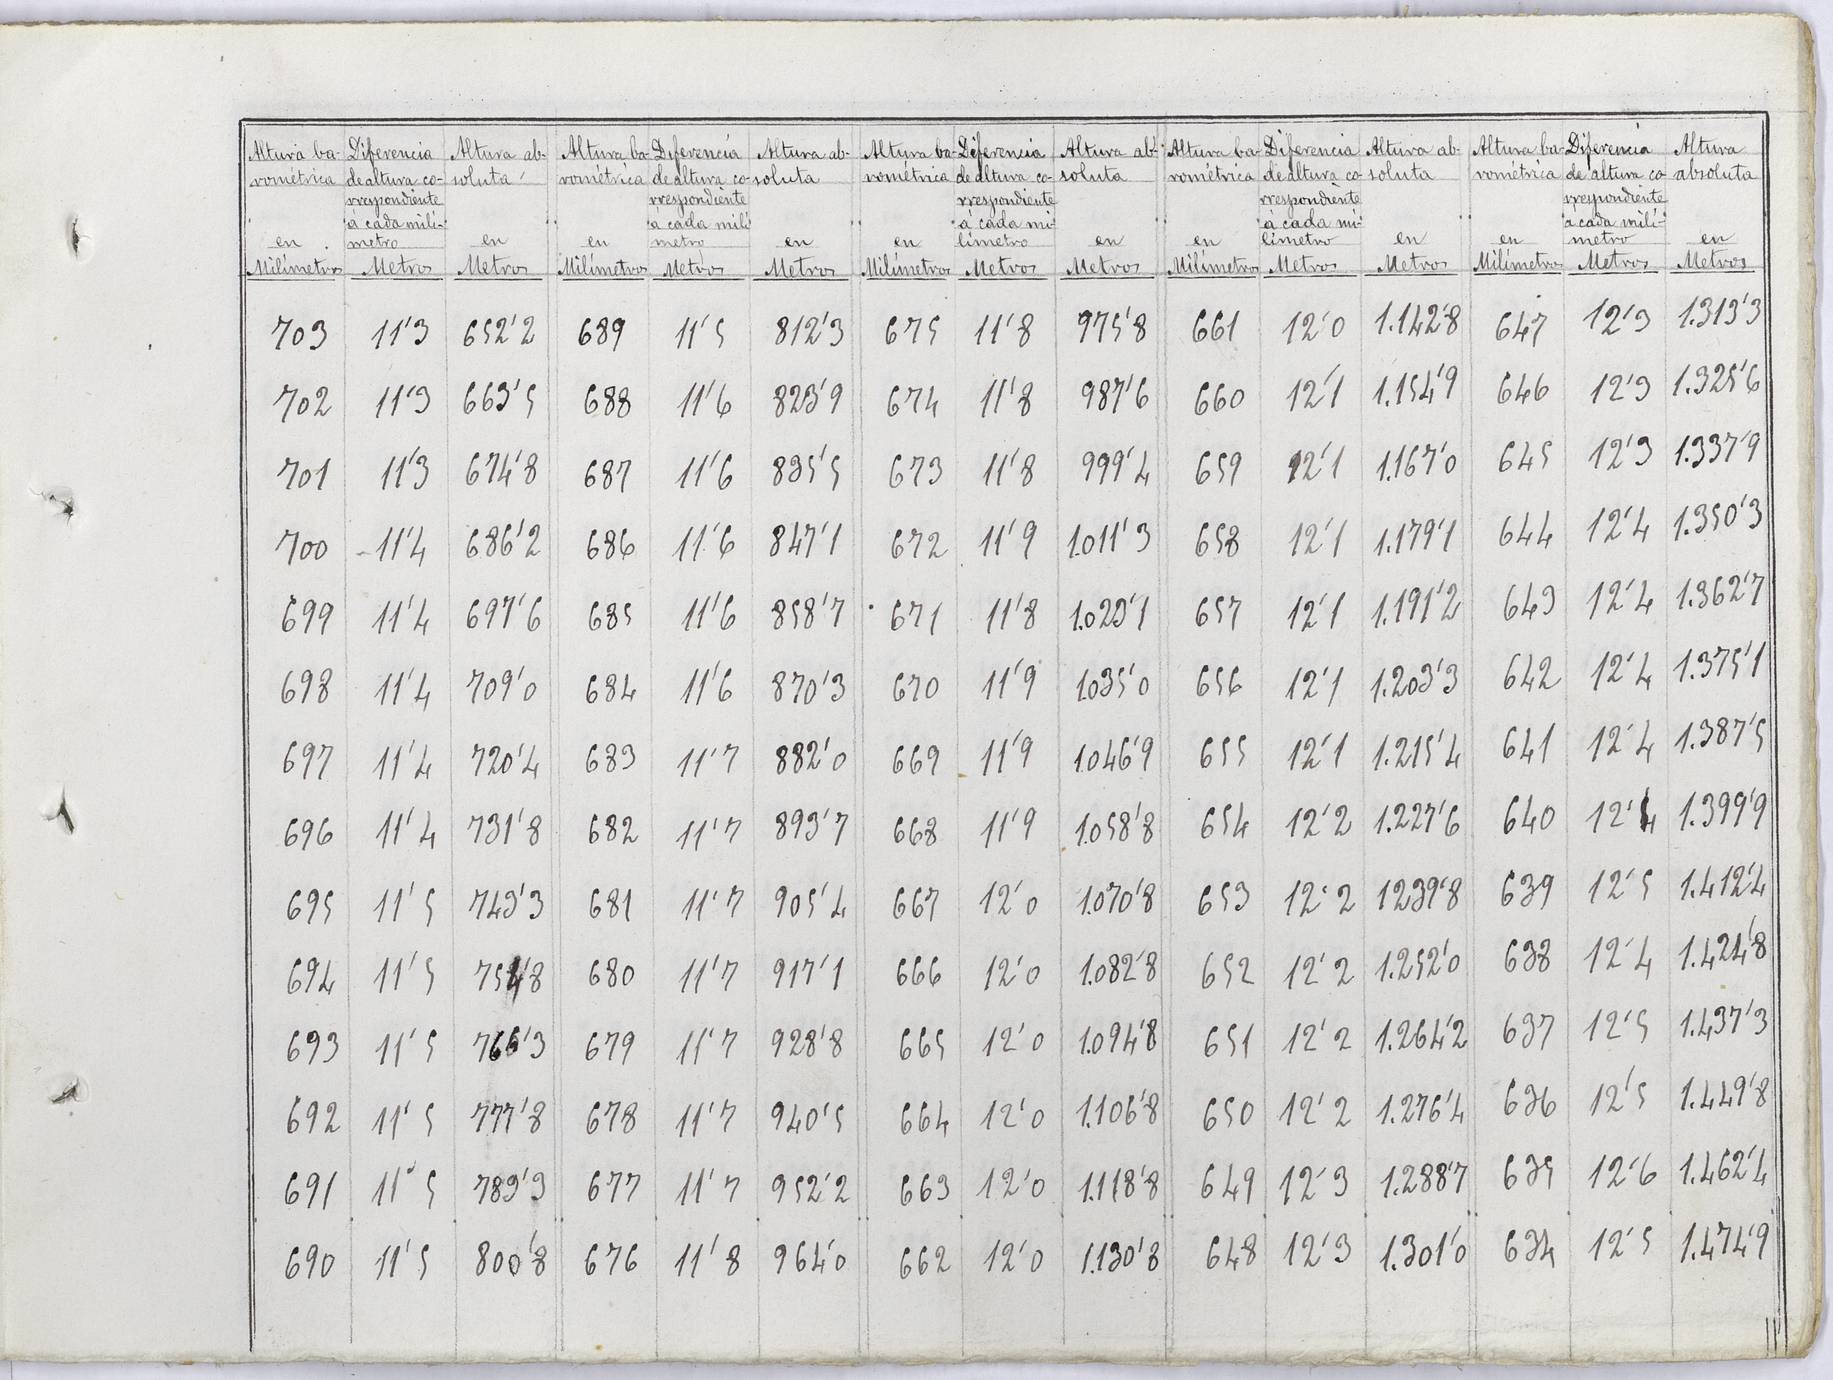 Altura ba- Diferencia Altura ab- Altura ba- Diferencia Altura ab- Altura ba- Diferencia Altura ab- Altura ba- Diferencia Altura ab- Altura ba- Diferencia Altura
rométrica de altura co- soluta rométrica de altura co- soluta rométrica de altura co- soluta rométrica de altura co- soluta rométrica de altura co absoluta
rrespondiente rrespondiente rrespondiente rrespondiente rrespondiente
á cada milí- á cada milí á cada mi- á cada mi- á cada milí-
en metro en en metro en en límetro en en límetro en en metro en
Milímetros Metros Metros Milímetros Metros Metros Milímetros Metros Metros Milímetros Metros Metros Milímetros Metros Metros
703 11'3 652'2 689 11'5 812'3 675 11'8 975'8 661 12'0 1.142'8 647 12'3 1.313'3
702 11'3 663'5 688 11'6 823'9 674 11'8 987'6 660 12'1 1.154'9 646 12'3 1.325'6
701 11'3 674'8 687 11'6 835'5 673 11'8 999'4 659 12'1 1.167'0 645 12'3 1.337'9
700 11'4 686'2 686 11'6 847'1 672 11'9 1.011'3 658 12'1 1.179'1 644 12'4 1.350'3
699 11'4 697'6 685 11'6 858'7 671 11'8 1.023'1 657 12'1 1.191'2 643 12'4 1.362'7
698 11'4 709'0 684 11'6 870'3 670 11'9 1.035'0 656 12'1 1.203'3 642 12'4 1.375'1
697 11'4 720'4 683 11'7 882'0 669 11'9 1.046'9 655 12'1 1.215'4 641 12'4 1.387'5
696 11'4 731'8 682 11'7 893'7 668 11'9 1.058'8 654 12'2 1.227'6 640 12'4 1.399'9
695 11'5 743'3 681 11'7 905'4 667 12'0 1.070'8 653 12'2 1239'8 639 12'5 1.412'4
694 11'5 754'8 680 11'7 917'1 666 12'0 1.082'8 652 12'2 1.252'0 638 12'4 1.424'8
693 11'5 766'3 679 11'7 928'8 665 12'0 1.094'8 651 12'2 1.264'2 637 12'5 1.437'3
692 11'5 777'8 678 11'7 940'5 664 12'0 1.106'8 650 12'2 1.276'4 636 12'5 1.449'8
691 11'5 789'3 677 11'7 952'2 663 12'0 1.118'8 649 12'3 1.288'7 635 12'6 1.462'4
690 11'5 800'8 676 11'8 964'0 662 12'0 1.130'8 648 12'3 1.301'0 634 12'5 1.474'9